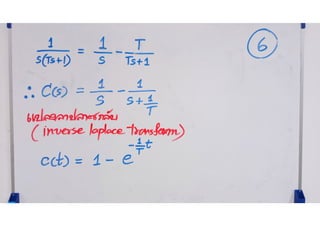 1/S(Ts+1) = 1/S - T/Ts+1
6
∴ C(s) = 1/S - 1/(s+1/T)
แปลงลาปลาซกลับ
(inverse laplace transform)
c(t) = 1 - e^(-1/T t)